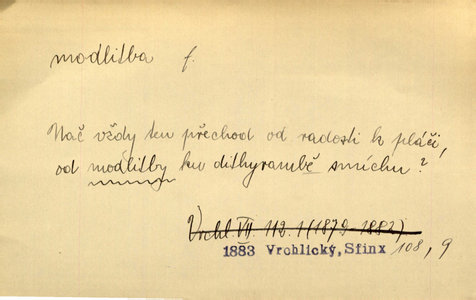 modlitba f.
Nač vždy ten přechod od radosti k pláči,
od modlitby ku dithyrambě smíchu?
Vrchl. VII. 112. 1 (1879-1882)
1883 Vrchlický, Sfinx 108, 9